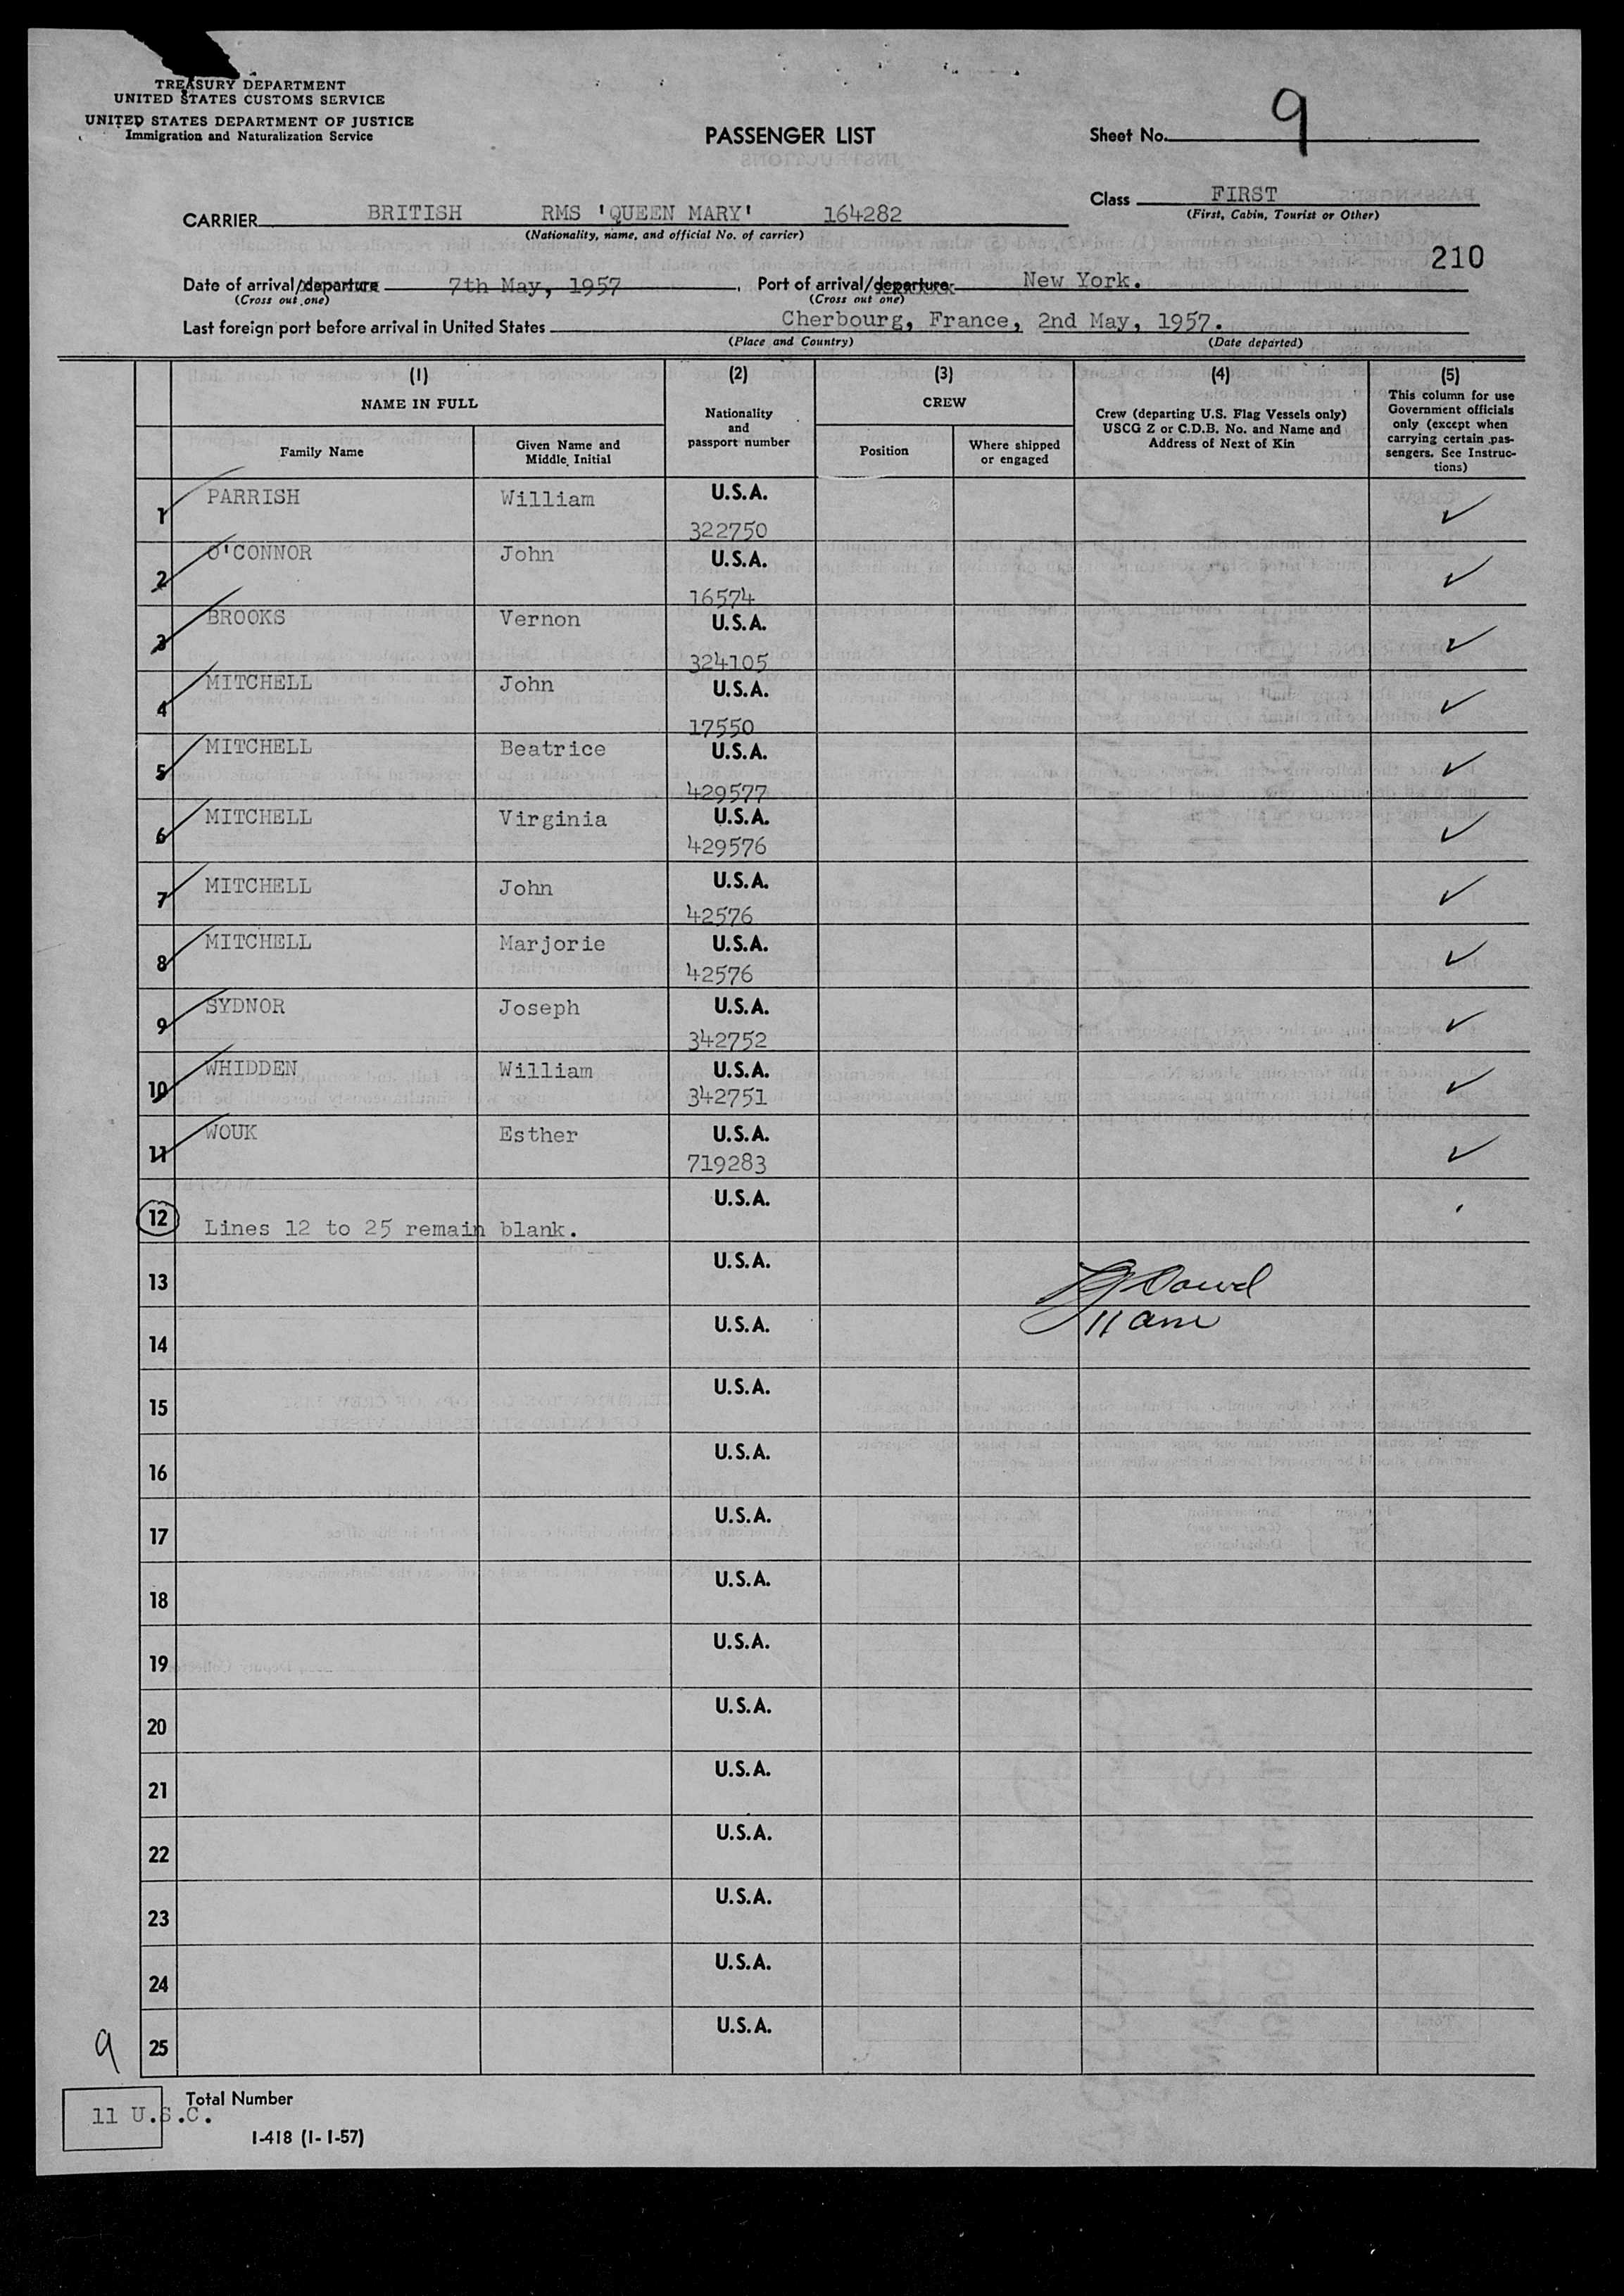 TREASURY DEPARTMENT
UNITED STATES CUSTOMS SERVICE
UNITED STATES DEPARTMENT OF JUSTICE
Immigration and Naturalization Service
PASSENGER LIST
Sheet No. 9
Class FIRST
(First, Cabin, Tourist or Other)
CARRIER BRITISH RMS 'QUEEN MARY' 164282
(Nationality, name, and official No. of carrier)
210
Date of arrival/departure 7th May, 1957. Port of arrival/departure New York.
(Cross out one) (Cross out one)
Last foreign port before arrival in United States Cherbourg, France, 2nd May, 1957.
(Place and Country) (Date departed)
(1) (2) (3) (4) (5)
NAME IN FULL
Family Name
Given Name and
Middle Initial
Nationality
and
passport number
CREW
Position
Where shipped
or engaged
Crew (departing U.S. Flag Vessels only)
USCG Z or C.D.B. No. and Name and
Address of Next of Kin
This column for use
Government officials
only (except when
carrying certain pas-
sengers. See Instruc-
tions)
1 PARRISH William U.S.A. ✓
322750
2 O'CONNOR John U.S.A. ✓
16574
3 BROOKS Vernon U.S.A. ✓
324105
4 MITCHELL John U.S.A. ✓
17550
5 MITCHELL Beatrice U.S.A. ✓
429577
6 MITCHELL Virginia U.S.A. ✓
429576
7 MITCHELL John U.S.A. ✓
42576
8 MITCHELL Marjorie U.S.A. ✓
42576
9 SYDNOR Joseph U.S.A. ✓
342752
10 WHIDDEN William U.S.A. ✓
342751
11 WOUK Esther U.S.A. ✓
719283
12 U.S.A.
Lines 12 to 25 remain blank.
13 U.S.A.
14 U.S.A. 11 am
15 U.S.A.
16 U.S.A.
17 U.S.A.
18 U.S.A.
19 U.S.A.
20 U.S.A.
21 U.S.A.
22 U.S.A.
23 U.S.A.
24 U.S.A.
25 U.S.A.
9
Total Number
11 U.S.C.
I-418 (1-1-57)